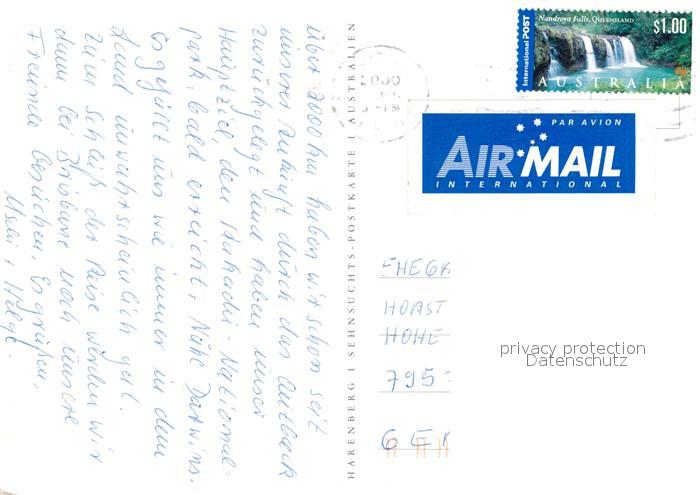 über 2000 km haben wir schon seit
unserer Ankunft durch das Outback
zurückgelegt und haben unser
Hauptziel, den Kakadu-National=
park, bald erreicht, Nähe Darwins.
Es gefällt uns wie immer in dem
Land unwahrscheinlich gut.
Zum Schluß der Reise werden wir
dann bei Brisbane noch unsere
Freunde besuchen. Es grüßen,
+ Helga.
HARENBERG I SEHNSUCHTS-POSTKARTE I AUSTRALIEN
Nandroya Falls, QUEENSLAND
$1.00
International POST
AUSTRALIA
2000
PAR AVION
AIR MAIL
INTERNATIONAL
EHEGA
HORST
HOHE
795
GEN
privacy protection
Datenschutz